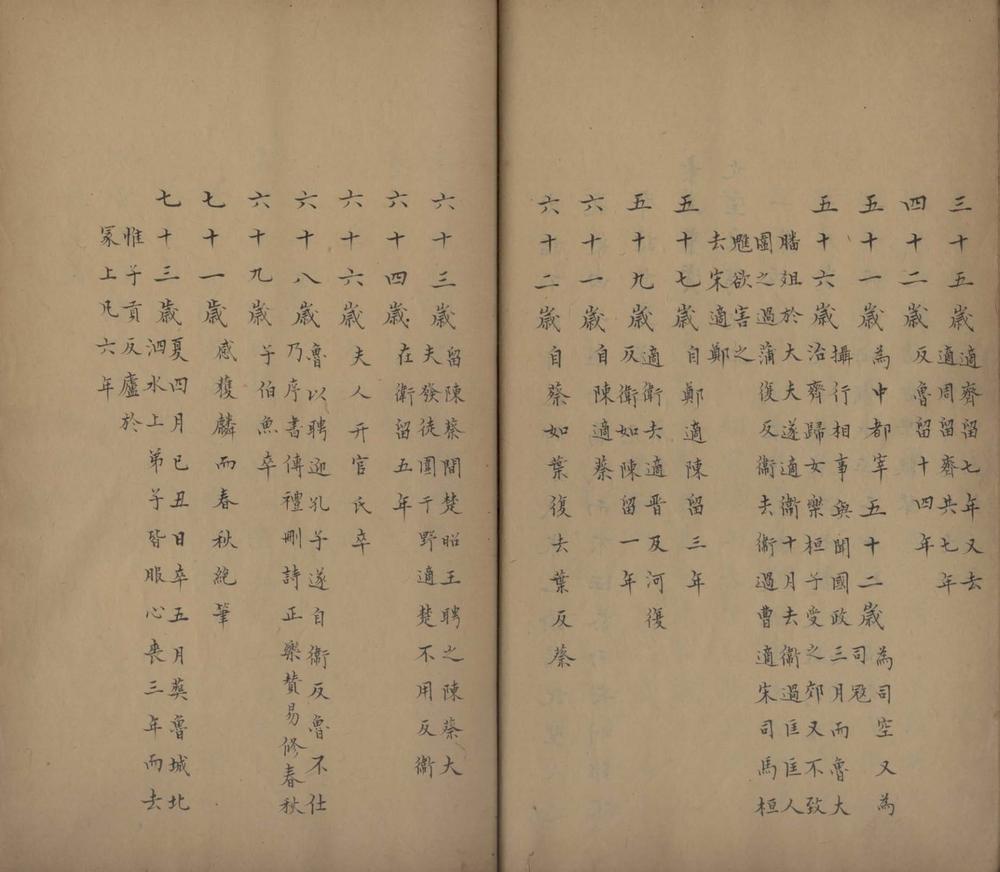 三十五歲適齊留七年又去
適周留齊共七年
四十二歲反魯留十四年
五十一歲為中都宰五十二歲為司空又為
司寇
五十六歲攝行相事與聞國政三月而魯大
治齊歸女樂桓子受之郊又不致
膰姐於大夫遂適衞十月去衞過匡匡人
圍之過蒲復反衞去衞過曹適宋司馬桓
魋欲害之
去宋適鄭
五十七歲自鄭適陳留三年
五十九歲適衞去適晋及河復
反衞如陳留一年
六十一歲自陳適蔡
六十二歲自蔡如葉復去葉反蔡
六十三歲留陳蔡間楚昭王聘之陳蔡大
夫發徒圍于野適楚不用反衞
六十四歲在衞留五年
六十六歲夫人开官氏卒
六十八歲魯以聘迎孔子遂自衞反魯不仕
乃序書傳禮刪詩正樂贊易修春秋
六十九歲子伯魚卒
七十一歲感獲麟而春秋絕筆
七十三歲夏四月己丑日卒五月葬魯城北
泗水上弟子皆服心喪三年而去
惟子貢反廬於
冢上凡六年